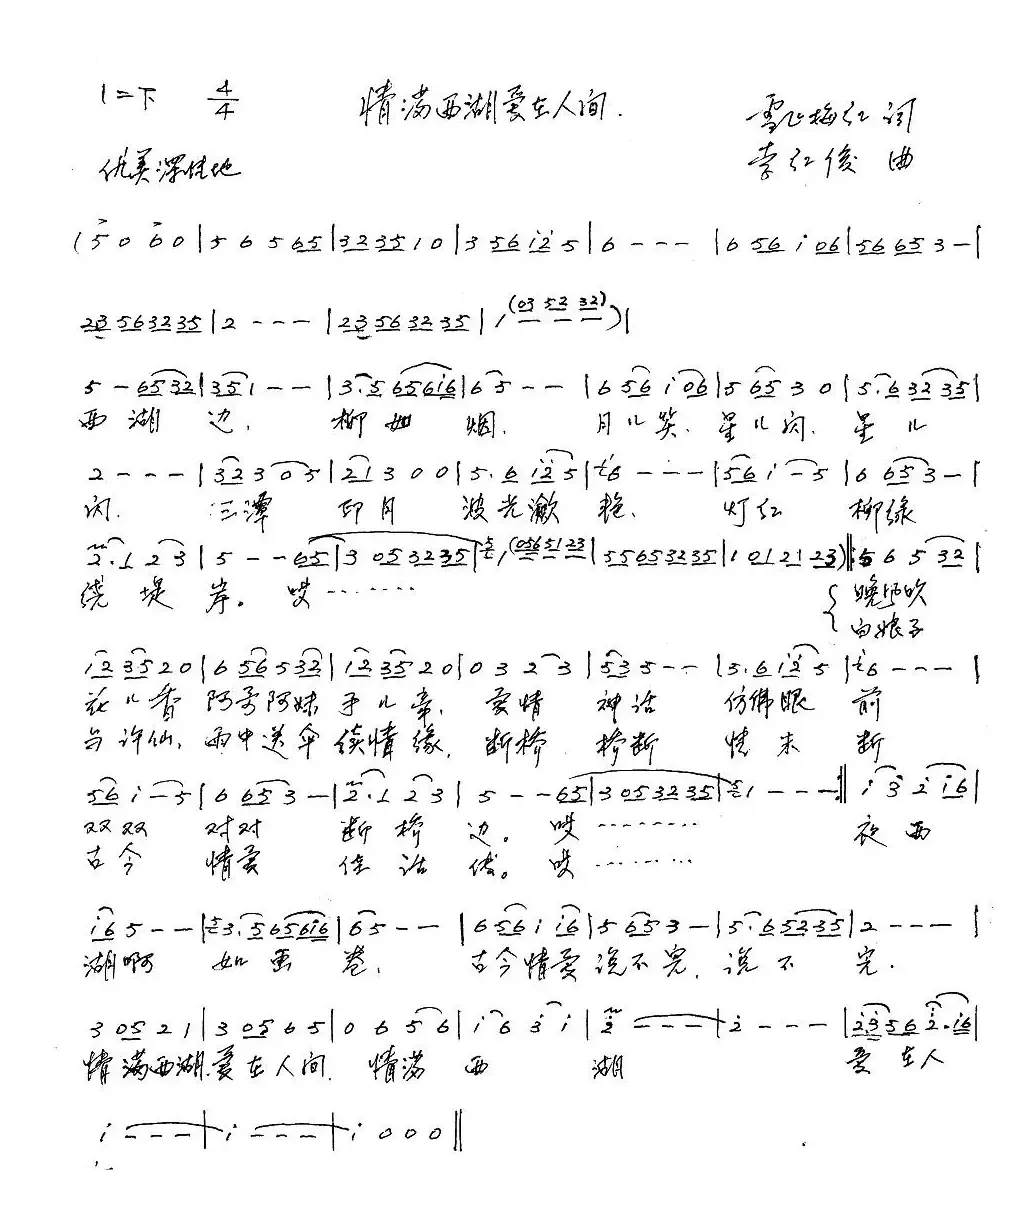 1=F 4/4 情满西湖爱在人间.
雪山梅红 词
优美深情地 李红俊 曲
(5 0 6 0|5 6 5 65|3235 1 0|3 56 i2 5|6 - - -|6 56 i 06|56 65 3 -|
23 56 32 35|2 - - -|23 56 32 35|1 (03 52 32)|
5 - 65 32|35 1 - -|3.5 65 6i6|6 5 - -|6 56 i 06|5 65 3 0|5.6 32 35|
西湖 边, 柳如 烟, 月儿笑, 星儿闪, 星儿
2 - - -|32 3 0 5|21 3 0 0|5.6 i2 5|i6 - - -|56 i - 5|6 65 3 -|
闪. 三潭 印月 波光潋 艳, 灯红 柳绿
2.1 2 3|5 - - 65|3 05 32 35|1 (0565123|55 65 32 35|1 01 21 23)|:5 6 5 32|
绕堤 岸。哎······· 晚风吹
白娘子
i2 35 2 0|6 56 5 32|12 35 2 0|0 3 2 3|53 5 - -|3.6 i2 5|i6 - - -|
花儿香 阿哥阿妹 手儿牵, 爱情 神话 仿佛眼 前
与许仙, 雨中送伞 续情缘, 断桥 桥断 情未 断
56 i - 5|6 65 3 -|2.1 2 3|5 - - 65|3 05 32 35|1 - - -:|i 3 2 i6|
双双 对对 断桥 边。哎········ 夜西
古今 情爱 佳话 传。哎········
i6 5 - -|3.5 65 6i6|65 - -|6 56 i i6|5 65 3 -|5.6 52 35|2 - - -|
湖啊 如画 卷, 古今情爱 说不完, 说不 完.
3 05 2 1|3 05 6 5|0 6 5 6|i 6 3 i|2 - - -|2 - - -|23 56 2.i6|
情满西湖,爱在人间. 情满 西 湖 爱在人
i - - -|i - - -|i 0 0 0||